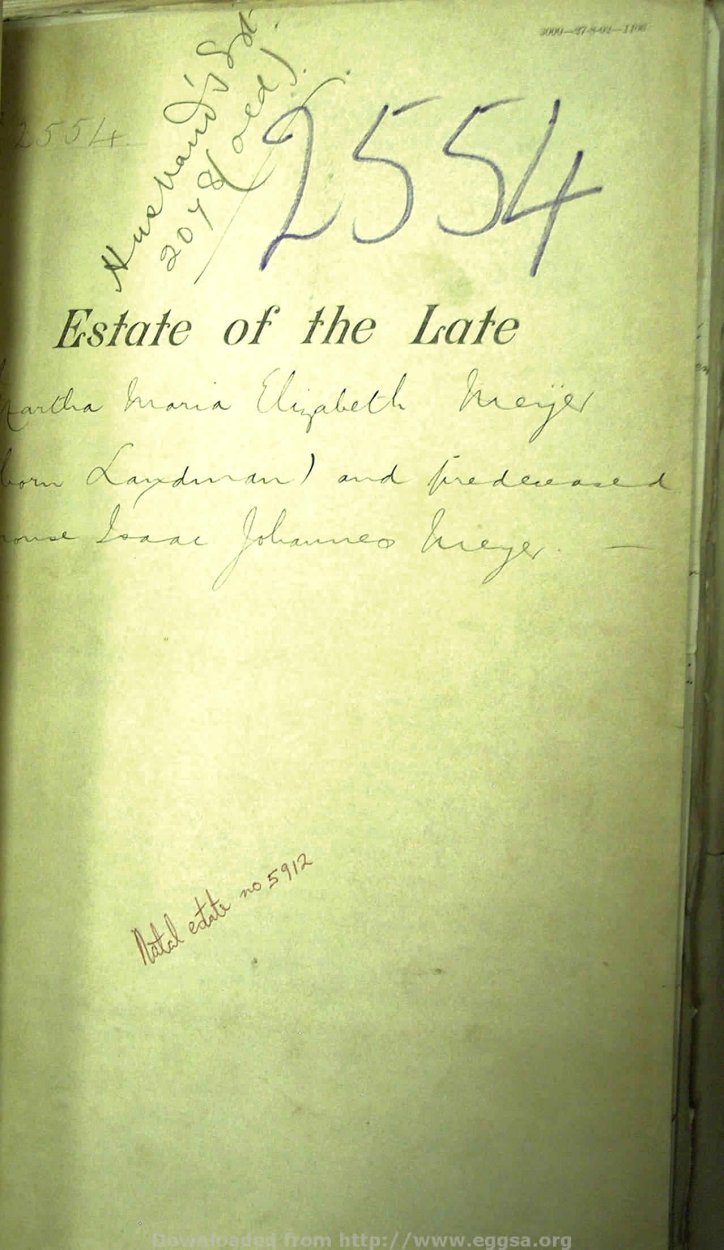 Husband's Est.
2078 (old)
2554
2554
Estate of the Late
Martha Maria Elizabeth Meijer
born Landman) and predeceased
Isaac Johannes Meyer. —
Natal estate no 5912
Downloaded from http://www.eggsa.org